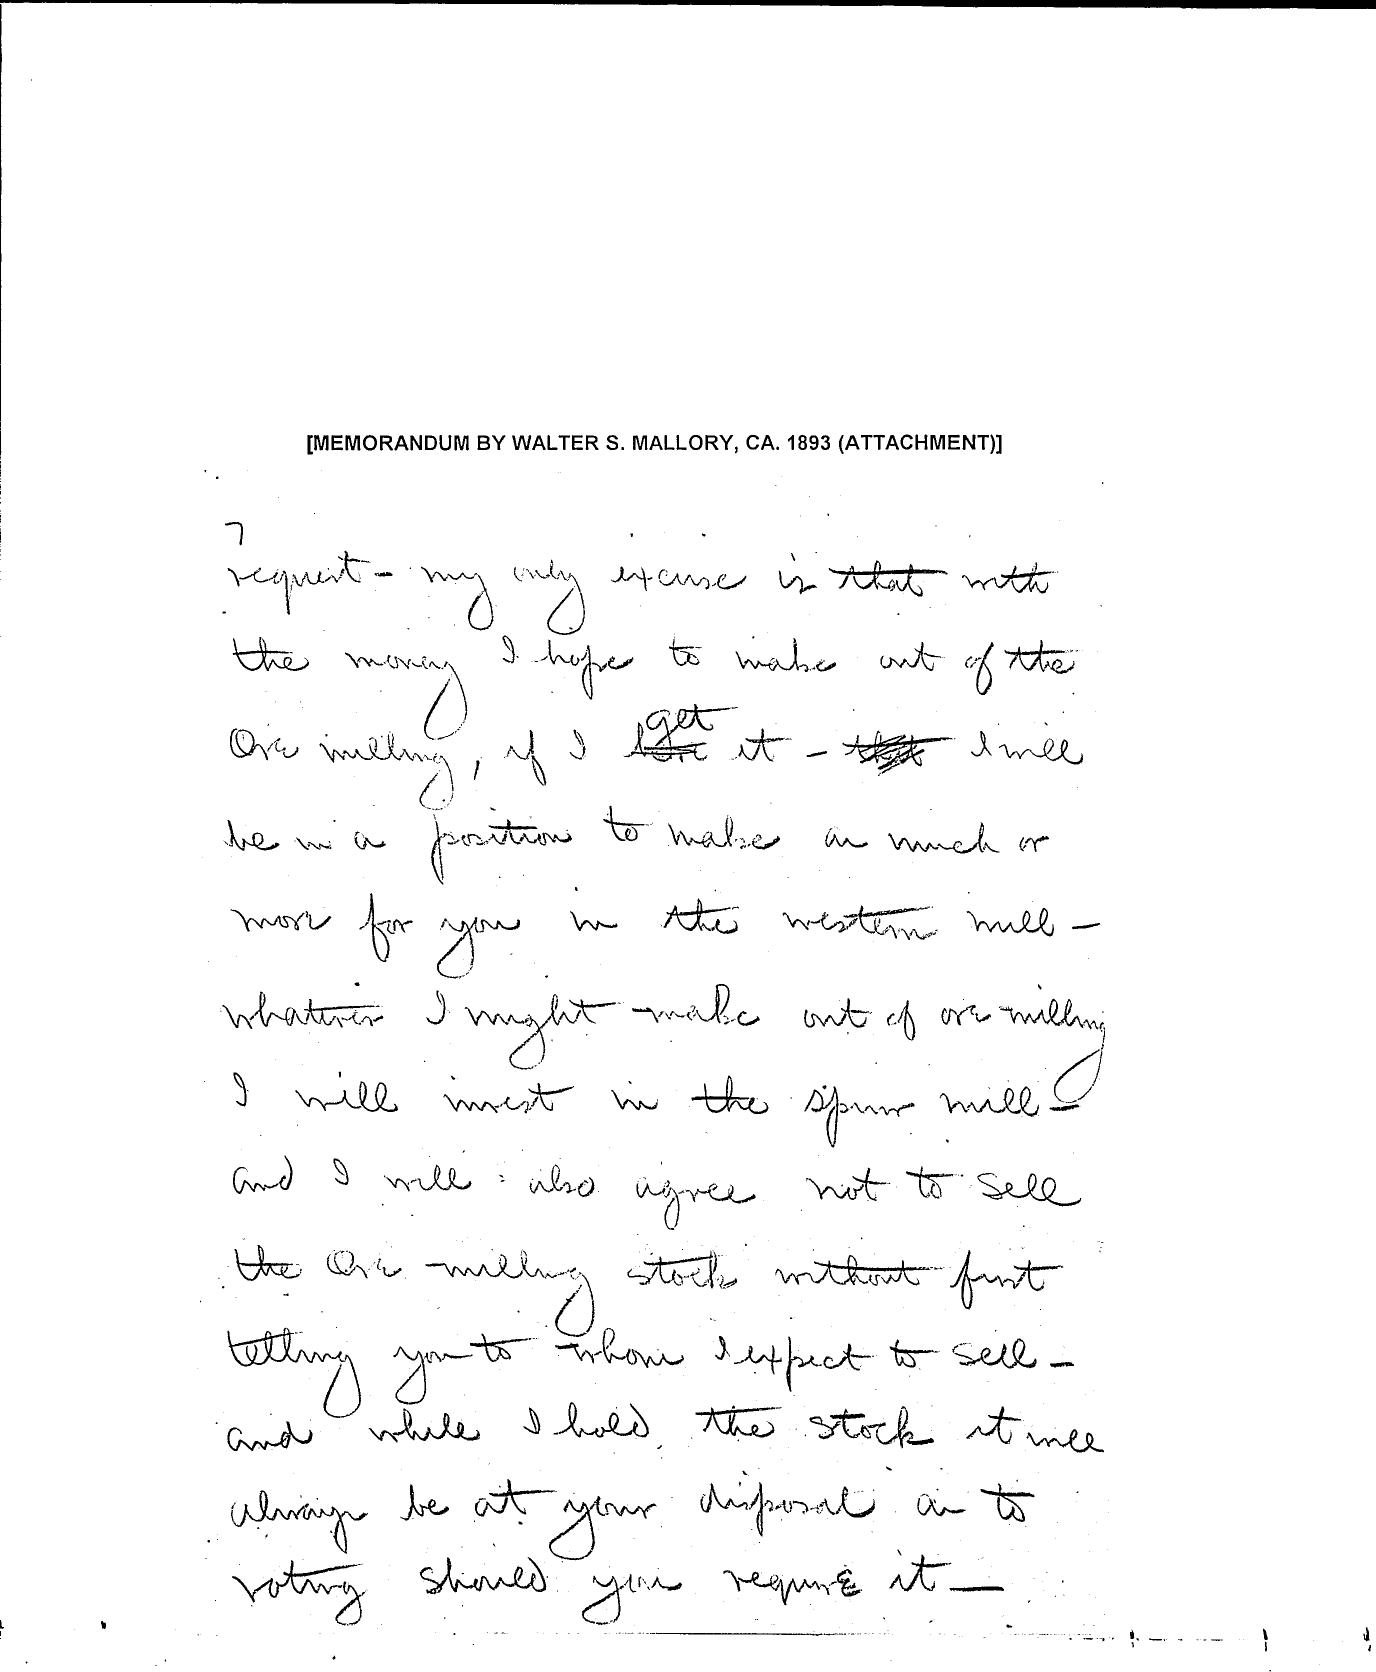 [MEMORANDUM BY WALTER S. MALLORY, CA. 1893 (ATTACHMENT)]
7
request - my only excuse is that with
the money I hope to make out of the
get
Ore milling, if I have it - that I will
be in a position to make as much or
more for you in the western mill -
whatever I might make out of ore milling
I will invest in the mill -
and I will also agree not to sell
the Ore milling stock without first
telling you to whom I expect to sell -
and while I hold the stock it will
always be at your disposal as to
voting should you require it -